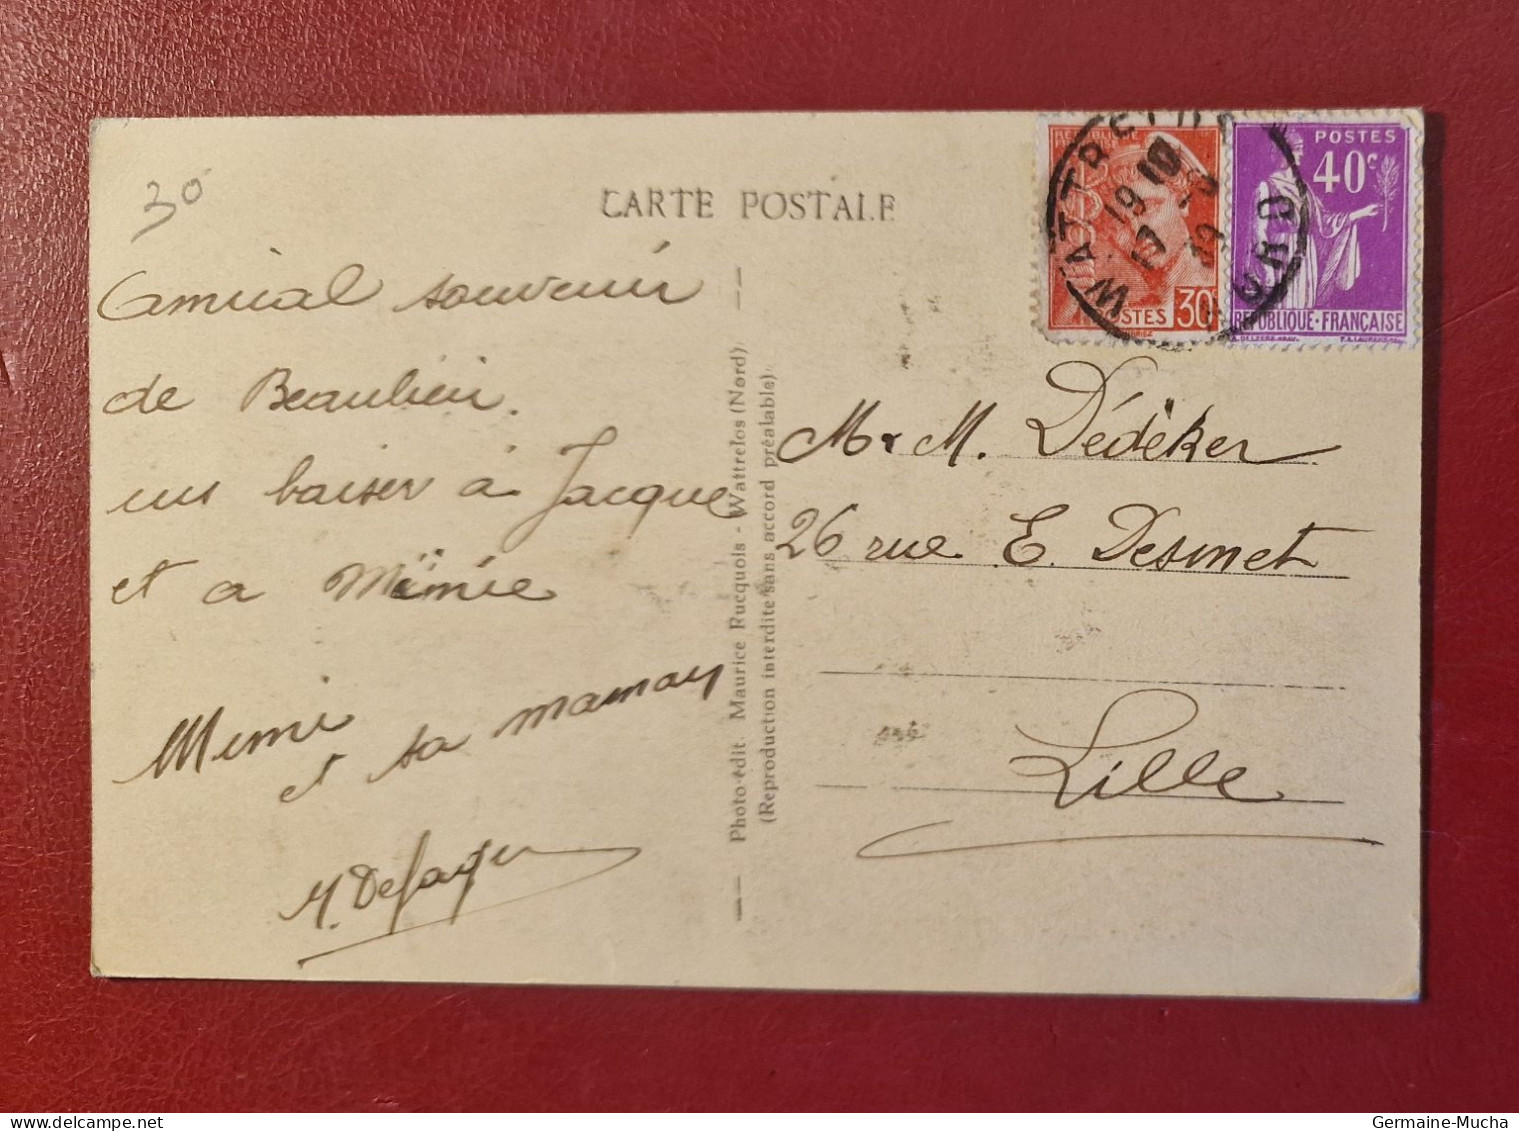 30
CARTE POSTALE
Amical souvenir
de Beaulieu.
un baiser à Jacque
et a Mimie
Mimi
et sa maman
M. Defager
Photo-édit. Maurice Rucquois - Wattrelos (Nord)
(Reproduction interdite sans accord préalable)
POSTES 30
POSTES
40c
REPUBLIQUE·FRANÇAISE
WATTRELOS
NORD
M r M. Dédèker
26 rue E. Desmet
Lille
Germaine-Mucha